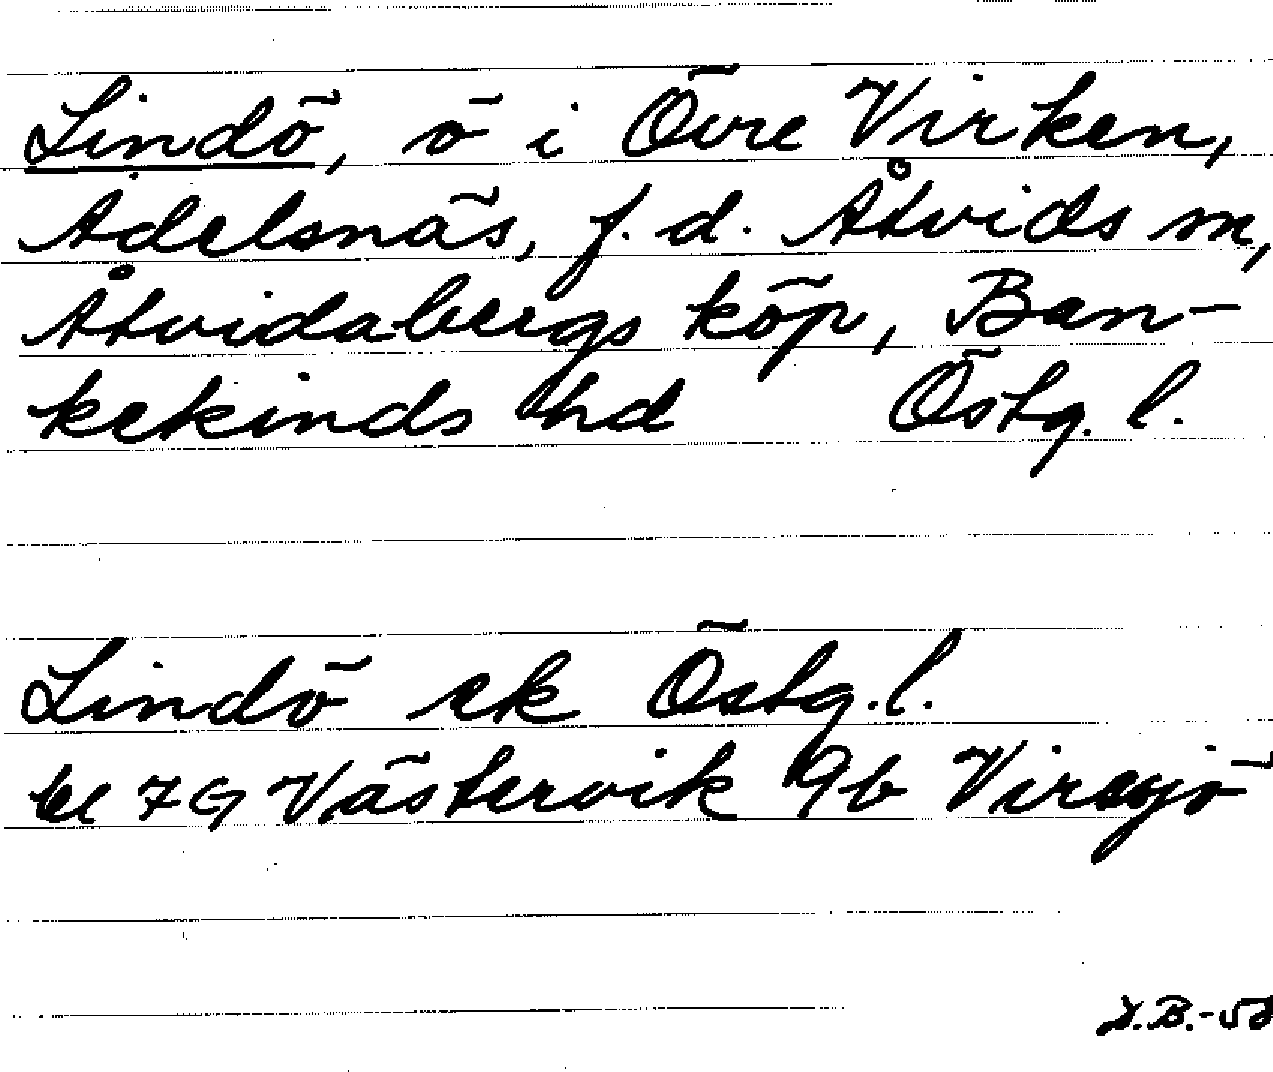 Lindö, ö i Övre Virken,
Adelsnäs, f.d. Åtvids sn,
Åtvidabergs köp, Ban-
kekinds hd Östg. l.
Lindö ek Östg.l.
bl 7G Västervik 9b Virsjö